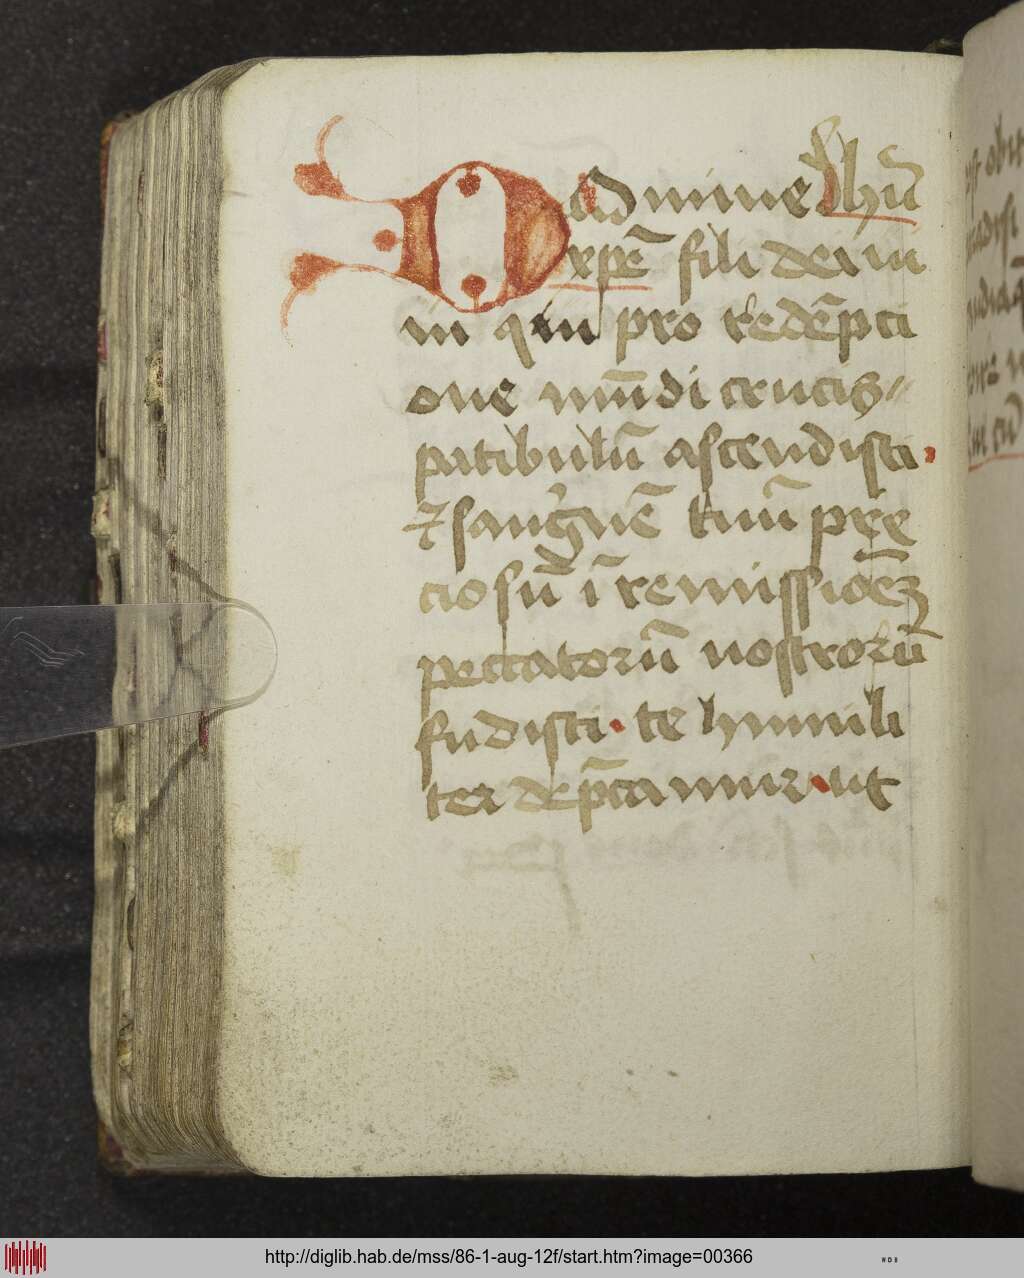 Oadmine Ihū
xp̄e fili dei ui
ui qui pro redēpti
one mūdi crucis
patibulū ascendisti.
⁊ sanguinē tuū pre
ciosū ī remissionē
peccatorū nostrorū
fudisti. te humili
ter dep̄camur. ut
http://diglib.hab.de/mss/86-1-aug-12f/start.htm?image=00366